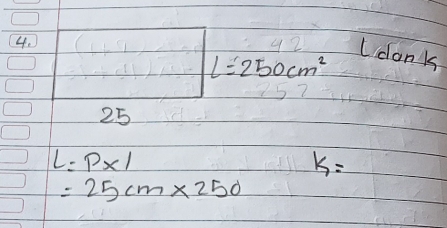 4.
L = 250cm²
L dan K
25
L = P x l
= 25cm x 250
K =